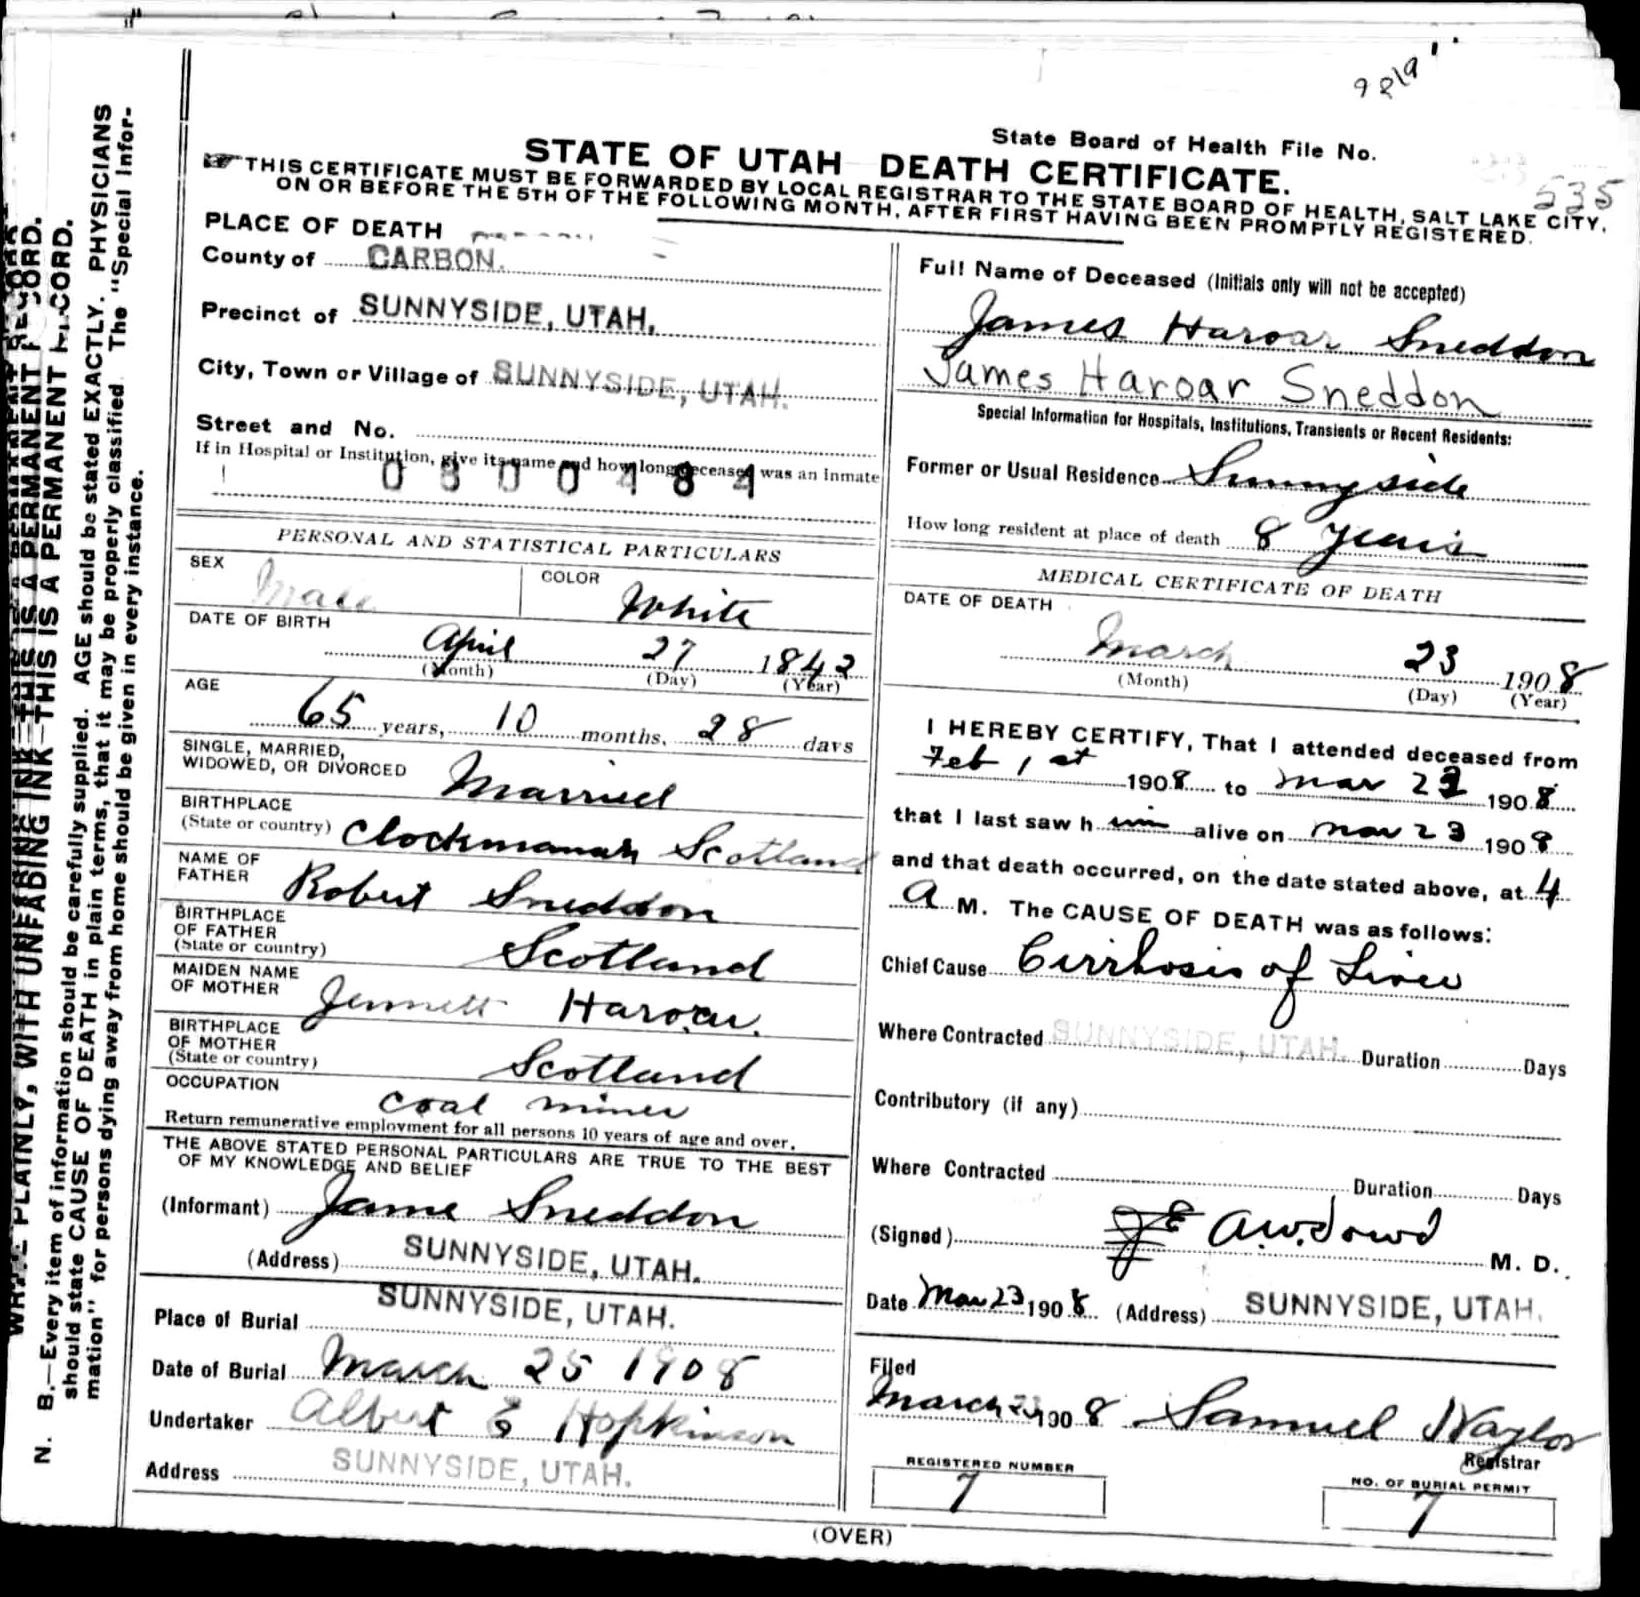 9819
State Board of Health File No.
535
STATE OF UTAH DEATH CERTIFICATE.
THIS CERTIFICATE MUST BE FORWARDED BY LOCAL REGISTRAR TO THE STATE BOARD OF HEALTH, SALT LAKE CITY,
ON OR BEFORE THE 5TH OF THE FOLLOWING MONTH, AFTER FIRST HAVING BEEN PROMPTLY REGISTERED.
PLACE OF DEATH
County of CARBON.
Precinct of SUNNYSIDE, UTAH.
City, Town or Village of SUNNYSIDE, UTAH.
Street and No.
If in Hospital or Institution, give its name and how long deceased was an inmate
0300484
PERSONAL AND STATISTICAL PARTICULARS
SEX Male COLOR White
DATE OF BIRTH
April 27 1842
(Month) (Day) (Year)
AGE
65 years, 10 months, 28 days
SINGLE, MARRIED,
WIDOWED, OR DIVORCED Married
BIRTHPLACE
(State or country) Clockmanah Scotland
NAME OF
FATHER Robert Sneddon
BIRTHPLACE
OF FATHER
(State or country) Scotland
MAIDEN NAME
OF MOTHER Jennett Haroar.
BIRTHPLACE
OF MOTHER
(State or country) Scotland
OCCUPATION
coal miner
Return remunerative employment for all persons 10 years of age and over.
THE ABOVE STATED PERSONAL PARTICULARS ARE TRUE TO THE BEST
OF MY KNOWLEDGE AND BELIEF
(Informant) Jame Sneddon
(Address) SUNNYSIDE, UTAH.
Place of Burial SUNNYSIDE, UTAH.
Date of Burial March 25 1908
Undertaker Albert E Hopkinson
Address SUNNYSIDE, UTAH.
Full Name of Deceased (Initials only will not be accepted)
James Haroar Sneddon
James Haroar Sneddon
Special Information for Hospitals, Institutions, Transients or Recent Residents:
Former or Usual Residence Sunnyside
How long resident at place of death 8 years
MEDICAL CERTIFICATE OF DEATH
DATE OF DEATH
March 23 1908
(Month) (Day) (Year)
I HEREBY CERTIFY, That I attended deceased from
Feb 1 st 1908 to Mar 23 1908
that I last saw him alive on Mar 23 1908
and that death occurred, on the date stated above, at 4
A M. The CAUSE OF DEATH was as follows:
Chief Cause Cirrhosis of Liver
Where Contracted SUNNYSIDE, UTAH. Duration Days
Contributory (if any)
Where Contracted Duration Days
(Signed) A.W. Dowd M. D.
Date Mar 23 1908 (Address) SUNNYSIDE, UTAH.
Filed
March 23 1908 Samuel Naylor
Registrar
REGISTERED NUMBER
7
NO. OF BURIAL PERMIT
7
(OVER)
WRITE PLAINLY, WITH UNFADING INK—THIS IS A PERMANENT RECORD.
N. B.—Every item of information should be carefully supplied. AGE should be stated EXACTLY. PHYSICIANS
should state CAUSE OF DEATH in plain terms, that it may be properly classified. The "Special Infor-
mation" for persons dying away from home should be given in every instance.